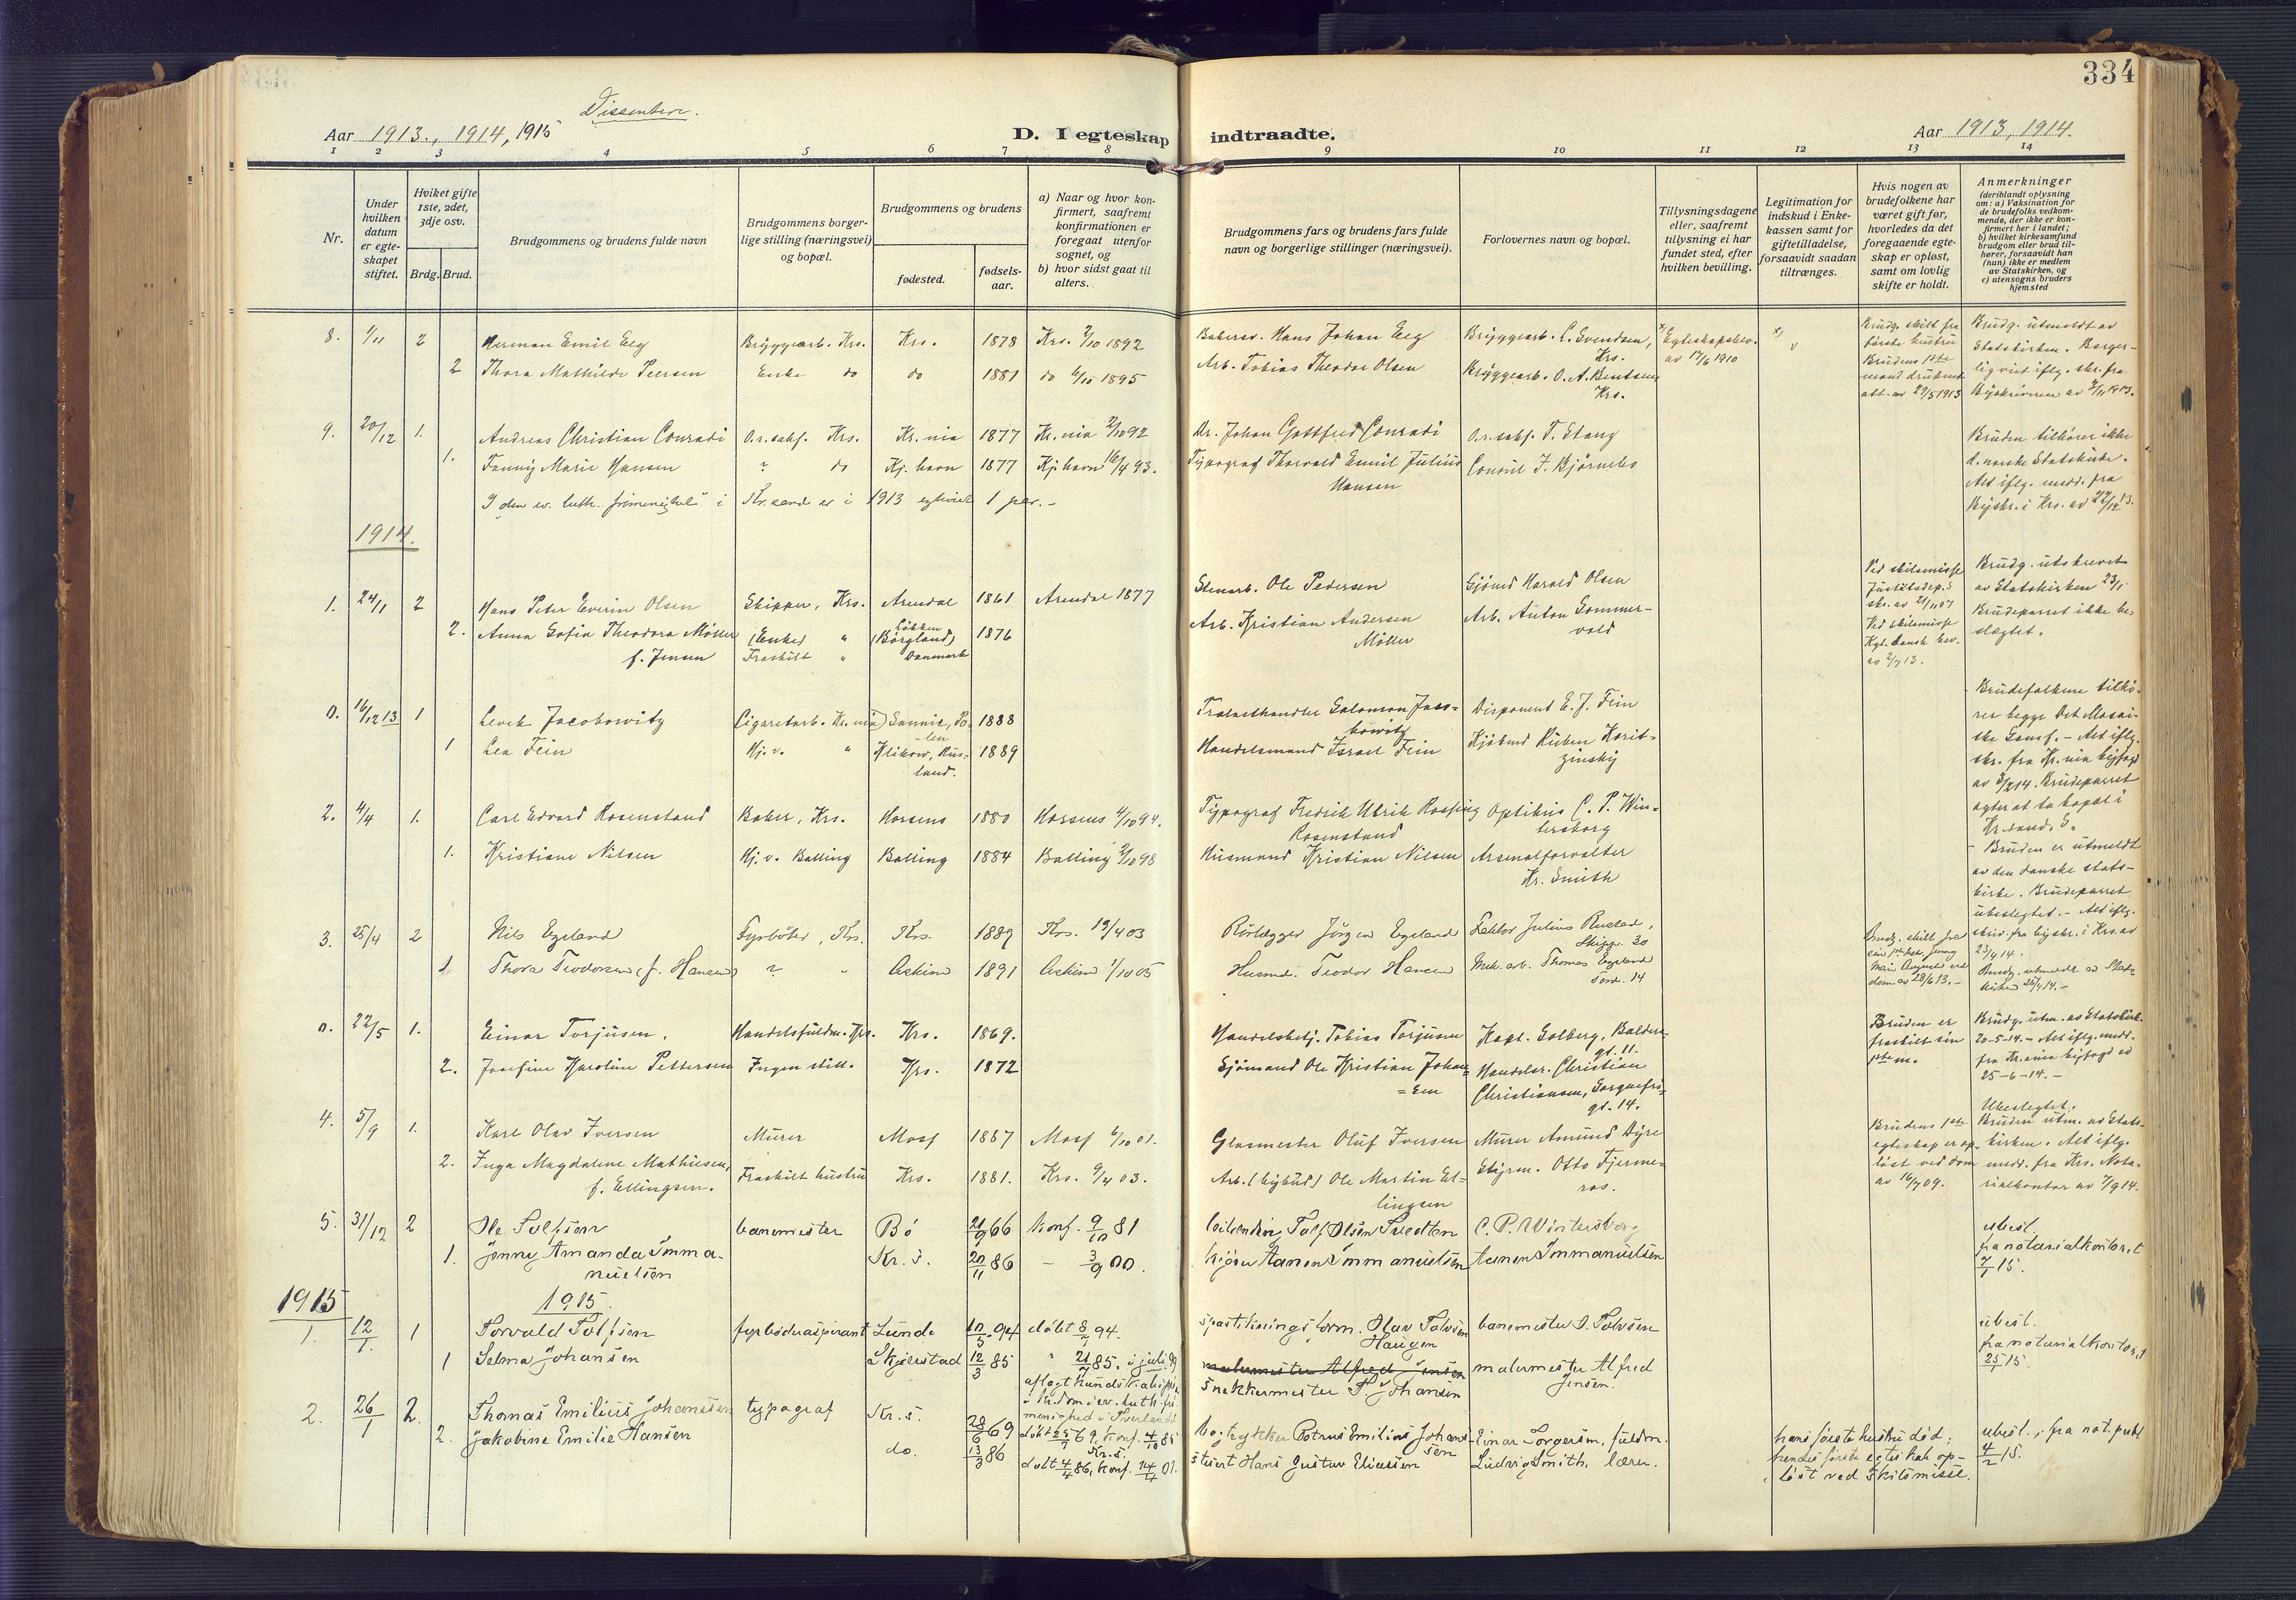 334
Dissentere.
Aar 1913., 1914, 1915
D. I egteskap indtraadte.
Aar 1913, 1914.
1 2 3 4 5 6 7 8 9 10 11 12 13 14
Nr.
Under hvilken datum er egteskapet stiftet.
Hviket gifte 1ste, 2det, 3dje osv.
Brdg. Brud.
Brudgommens og brudens fulde navn
Brudgommens borgerlige stilling (næringsvei) og bopæl.
Brudgommens og brudens
fødested.
fødselsaar.
a) Naar og hvor konfirmert, saafremt konfirmationen er foregaat utenfor sognet, og
b) hvor sidst gaat til alters.
Brudgommens fars og brudens fars fulde navn og borgerlige stillinger (næringsvei).
Forlovernes navn og bopæl.
Tillysningsdagene eller, saafremt tillysning ei har fundet sted, efter hvilken bevilling.
Legitimation for indskud i Enkekassen samt for giftetilladelse, forsaavidt saadan tiltrænges.
Hvis nogen av brudefolkene har været gift før, hvorledes da det foregaaende egteskap er opløst, samt om lovlig skifte er holdt.
Anmerkninger
(deriblandt oplysning om: a) Vaksination for de brudefolks vedkommende, der ikke er konfirmert her i landet; b) hvilket kirkesamfund brudgom eller brud tilhører, forsaavidt han (hun) ikke er medlem av Statskirken, og c) utensogns bruders hjemsted
8. 1/11 2 Herman Emil Eeg Bryggearb. Krs. Krs. 1878 Krs. 2/10 1892 Bakersv. Hans Johan Eeg Bryggearb. C. Svendsen, Krs. Egteskapsbev. av 17/6 1910
2 Thora Mathilde Petersen Enke do do 1881 do 6/10 1895 Arb. Tobias Theodor Olsen Bryggearb. O. A. Bentsen, Krs.
Brudg. skilt fra første hustru
Brudg. utmeldt av Statskirken. Borgerlig viet iflg. skr. fra Byskriveren av
9. 20/12 1. Andreas Christian Conradi O.r.sakf. Krs. Kr.nia 1877 Kr.nia 2/10 92 Dr. Johan Gottfred Conradi O.r.sakf. T. Stang
1. Fanny Marie Hansen ? do Kj.havn 1877 Kj.havn 16/4 93. Typograf Thorvald Emil Julius Hansen Consul J. Bjørnebo
Bruden tilhører ikke d. norske Statskirke. Alt iflg. medd. fra Byskr. i Krs. av 22/12 13.
I den ev. luth. frimenighet i Kr.sand er i 1913 egteviet 1 par. -
1914.
1. 24/1 2 Hans Peter Everin Olsen Skipper, Krs. Arendal 1861 Arendal 1877 Stenarb. Ole Pedersen Sjømd Harald Olsen
2. Anna Sofia Theodora Møller f. Jensen (Enke) " Fraskilt " Løkken (Børglund) Danmark 1876 Arb. Kristian Andersen Møller Arb. Anton Sommervold
Ved skilsmisse Justitsdep.s skr. av 21/11 07
Ved skilsmisse Kgl. dansk bev. av 2/7 13.
Brudg. utskrevet av Statskirken 23/1 Brudeparret ikke beslegtet.
0. 16/12 13 1 Levek Jacobowitz Cigaretarb. Kr.nia Sannie, Polen 1888 Salomon Jacobowitz Disponent E. J. Fein
1 Lea Fein Hj.v. " Klikow, Rusland. 1889 Handelsmand Israel Fein Kjøbmd Ruben Koritzinsky
Brudefolkene tilhører begge Det Mosaiske Samf. - Alt iflg. skr. fra Kr.nia byfogd av 3/2 14. Brudeparret agter at ta bopæl i Kr.sand S.
2. 4/4 1. Carl Edvard Rosenstand Baker, Krs. Horsens 1880 Horsens 4/10 94. Typograf Fredrik Ulrik Rosenstand Optikus C. P. Wintersborg
1. Kristiane Nilsen Hj.v. Balling Balling 1884 Balling 2/10 98 Husmand Kristian Nilsen Arsenalforvalter Kr. Smith
- Bruden er utmeldt av den danske statskirke. Brudeparret ubeslegtet. - Alt iflg. skriv. fra byskr. i Krs. av 23/4 14.
3. 25/4 2 Nils Egeland Fyrbøter, Krs. Krs. 1889 Krs. 19/4 03 Rørlægger Jørgen Egeland Lektor Julius Rustad, Skipp. 30
1 Thora Teodorsen (f. Hansen) ? " Askim 1891 Askim 1/10 05 Husmd. Teodor Hansen Mek. arb. Thomas Egeland Tord. 14
Brudg. utmeldt av Statskirken 25/4 14. -
0. 22/5 1. Einar Torjusen. Handelsfuldm. Krs. Krs. 1869. Handelsbetj. Tobias Torjusen Kapt. Solberg, Baldersgt. 11.
2. Josefine Karoline Pettersen Ingen still. Krs. 1872 Sjømand Ole Kristian Johansen Handelsr. Christian Christiansen, Sorgenfrigt. 14.
Bruden er fraskilt sin 1ste m.
Brudg. utm. av Statskirk. 20-5-14. - Alt iflg. medd. fra Kr.ania byfogd av 25-6-14. -
4. 5/9 1. Karl Olav Iversen Murer Moss 1887 Moss 6/10 01. Glasmester Oluf Iversen Murer Amund Dyre
2. Inga Magdalene Mathisen, f. Ellingsen. Fraskilt hustru Krs. 1881. Krs. 9/4 03. Arb. (bybud) Ole Martin Ellingsen Styrm. Otto Fjermeros.
Brudens 1ste egteskap er opløst ved dom av 16/7 09.
Ubeslegtet. Bruden utm. av Statskirken. Alt iflg. medd. fra Krs. Notarialkontor av 7/9 14.
5. 31/12 2 Ole Tolfsen banemester Bø 21/9 66 Konf. 9/10 81 Tolf Olsen C. P. Wintersborg
1. Jenny Amanda Immanuelsen Kr.s. 20/11 86 - 3/9 00. Aanen Immanuelsen Aanen Immanuelsen
ubesl. fra notarialkontoret 7/1 15.
1915 1915.
1. 12/1. 1 Torvald Tolfsen fyrbøderaspirant Lunde 10/5 94 døbt 8/7 94. Olav Tolvsen Haugen banemester O. Tolvsen
1 Selma Johansen Skjerstad 12/3 85 " 21/7 85. malermester Alfred Jensen
snekkermester P. Johansen malermester Alfred Jensen.
ubesl. fra notarialkontoret 25/1 15.
2. 26/1 2. Thomas Emilius Johanssen typograf Kr.s. 28/6 69 Bogtrykker Petrus Emilius Johanssen Einar Torgersen, fuldm.
2. Jakobine Emilie Hansen do. 13/3 86 døbt 4/4 86, konf. 14/4 01. stuert Hans Gustav Eliassen Ludvig Smith, lærer.
hans første hustru død; hendes første egteskab opløst ved skilsmisse.
ubesl., fra not. publ 4/2 15.